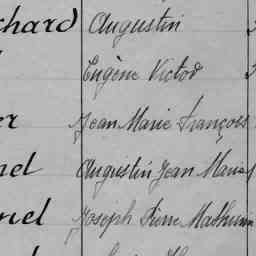 chard Augustin
Eugène Victor
er Jean Marie François
nel Augustin Jean Marie
riel Joseph Pierre Mathurin